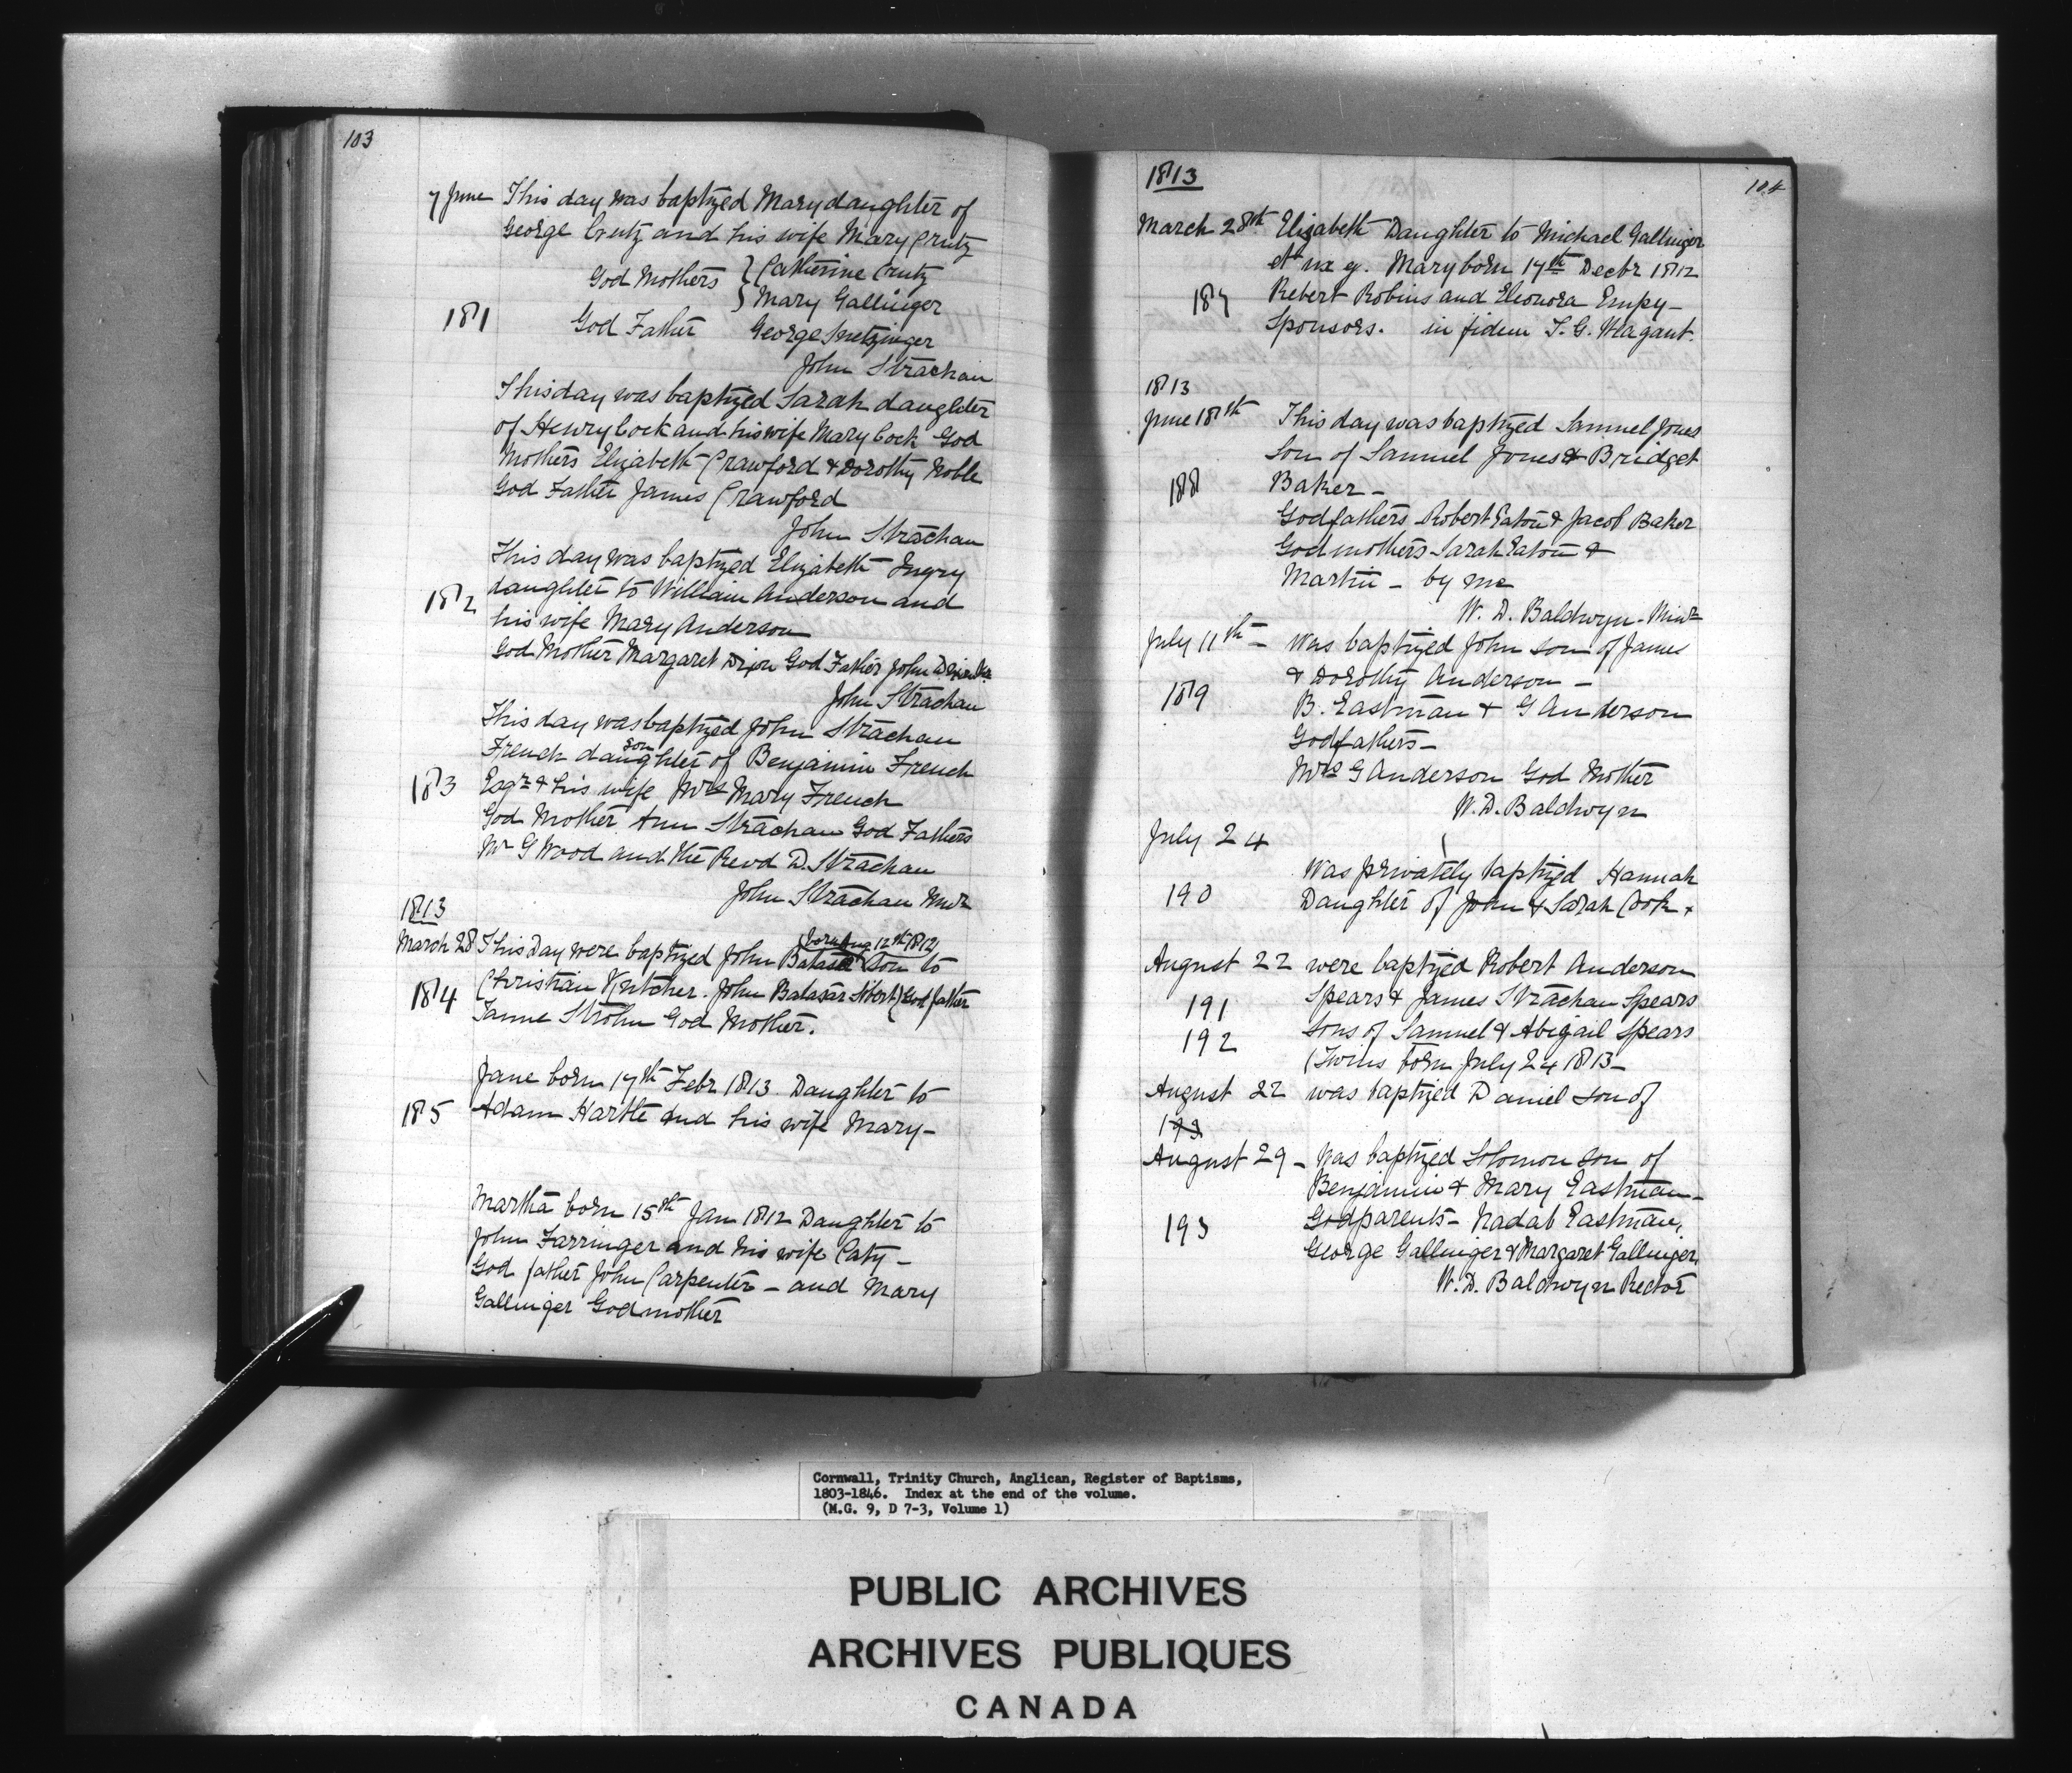 103
7 June This day was baptized Mary daughter of
George Crutz and his wife Mary Crutz
God Mothers } Catherine Crutz
} Mary Gallinger
181 God Father George Snetzinger
John Strachan
This day was baptized Sarah daughter
of Henry Cock and his wife Mary Cock God
Mothers Elizabeth Crawford & Dorothy Noble
God Father James Crawford
John Strachan
This day was baptized Elizabeth
182 daughter to William Anderson and
his wife Mary Anderson
God Mother Margaret Dixon God Father John
John Strachan
This day was baptized John Strachan
son
French daughter of Benjamin French
183 Esqr & his wife Mrs Mary French
God Mother Ann Strachan God Fathers
Mr G Wood and the Revd D. Strachan
John Strachan Minr
1813
born Aug 12th 1812
March 28 This Day were baptized John Batasar Son to
184 Christian John Batasar God father
Strohn God Mother.
Jane born 17th Febr 1813 Daughter to
185 Adam Hartle and his wife Mary-
Martha born 15th Jan 1812 Daughter to
John Farringer and his wife Caty -
God father John Carpenter - and Mary
Gallinger Godmother
104
1813
March 28th Elizabeth Daughter to Michael Gallinger
et ux g. Mary born 17th Decbr 1812
187 Robert Robins and Eleonora Empy -
Sponsors. in fidem I. G. Wagant.
1813
June 18th This day was baptized Samuel Jones
Son of Samuel Jones & Bridget
188 Baker -
Godfathers Robert Eaton & Jacob Baker
Godmothers Sarah Eaton &
Martin - by me
W. D. Baldwyn - Minr
July 11th - Was baptized John son of James
& Dorothy Anderson -
189 B. Eastman & G Anderson
Godfathers -
Mrs G Anderson God Mother
W. D. Baldwyn
July 24
Was privately baptized Hannah
190 Daughter of John & Sarah Cook.
August 22 were baptized Robert Anderson
191 Spears & James Strachan Spears
192 sons of Samuel & Abigail Spears
(Twins born July 24 1813 -
August 22 was baptized Daniel son of
193
August 29 - Was baptized Solomon son of
Benjamin & Mary Eastman -
193 Godparents - Nadab Eastman,
George Gallinger & Margaret Gallinger
W. D. Baldwyn Rector
Cornwall, Trinity Church, Anglican, Register of Baptisms,
1803-1846. Index at the end of the volume.
(M.G. 9, D 7-3, Volume 1)
PUBLIC ARCHIVES
ARCHIVES PUBLIQUES
CANADA